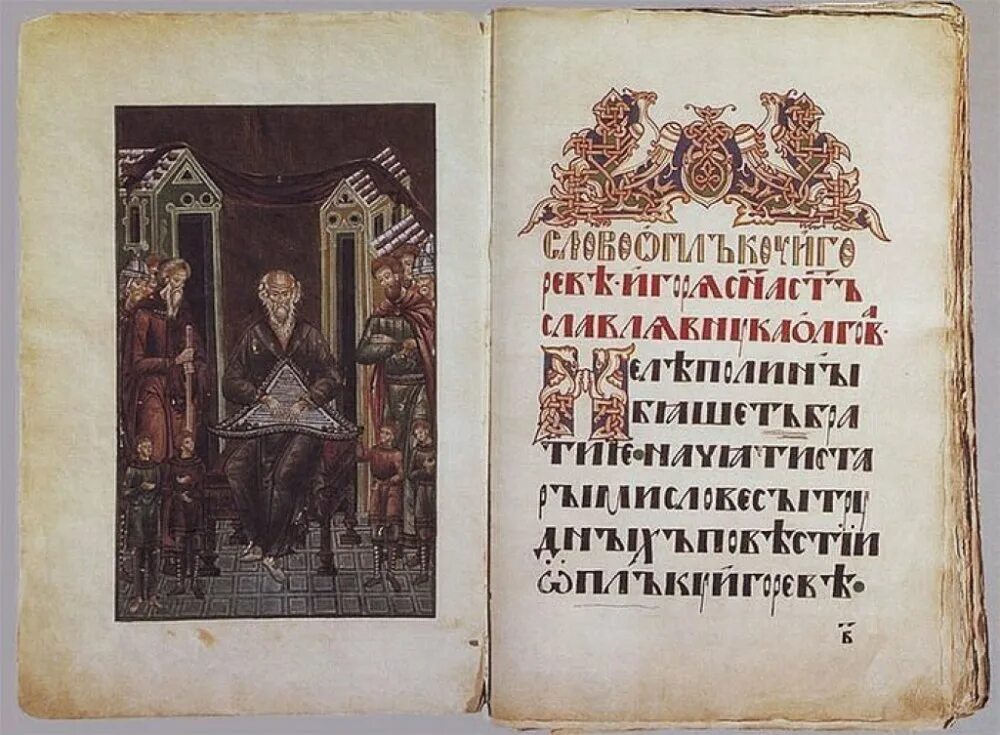 СЛОВОѠПЛЪКОУИГО
РЕВѢ·ИГОРѦСН҃АСТ҃Ъ
СЛАВЛѦВНꙊКАОЛГОВᲂА·
НЕЛѢПОЛИНЫ
БꙖШЕТЪБРА
ТИѤ·НАЧꙖТИСТА
РЪІМИСЛОВЕСЪІТРꙊ
ДНЪІХЪПОВѢСТІИ
ѠПЛЪКꙊИГОРЕВѢ·
Б